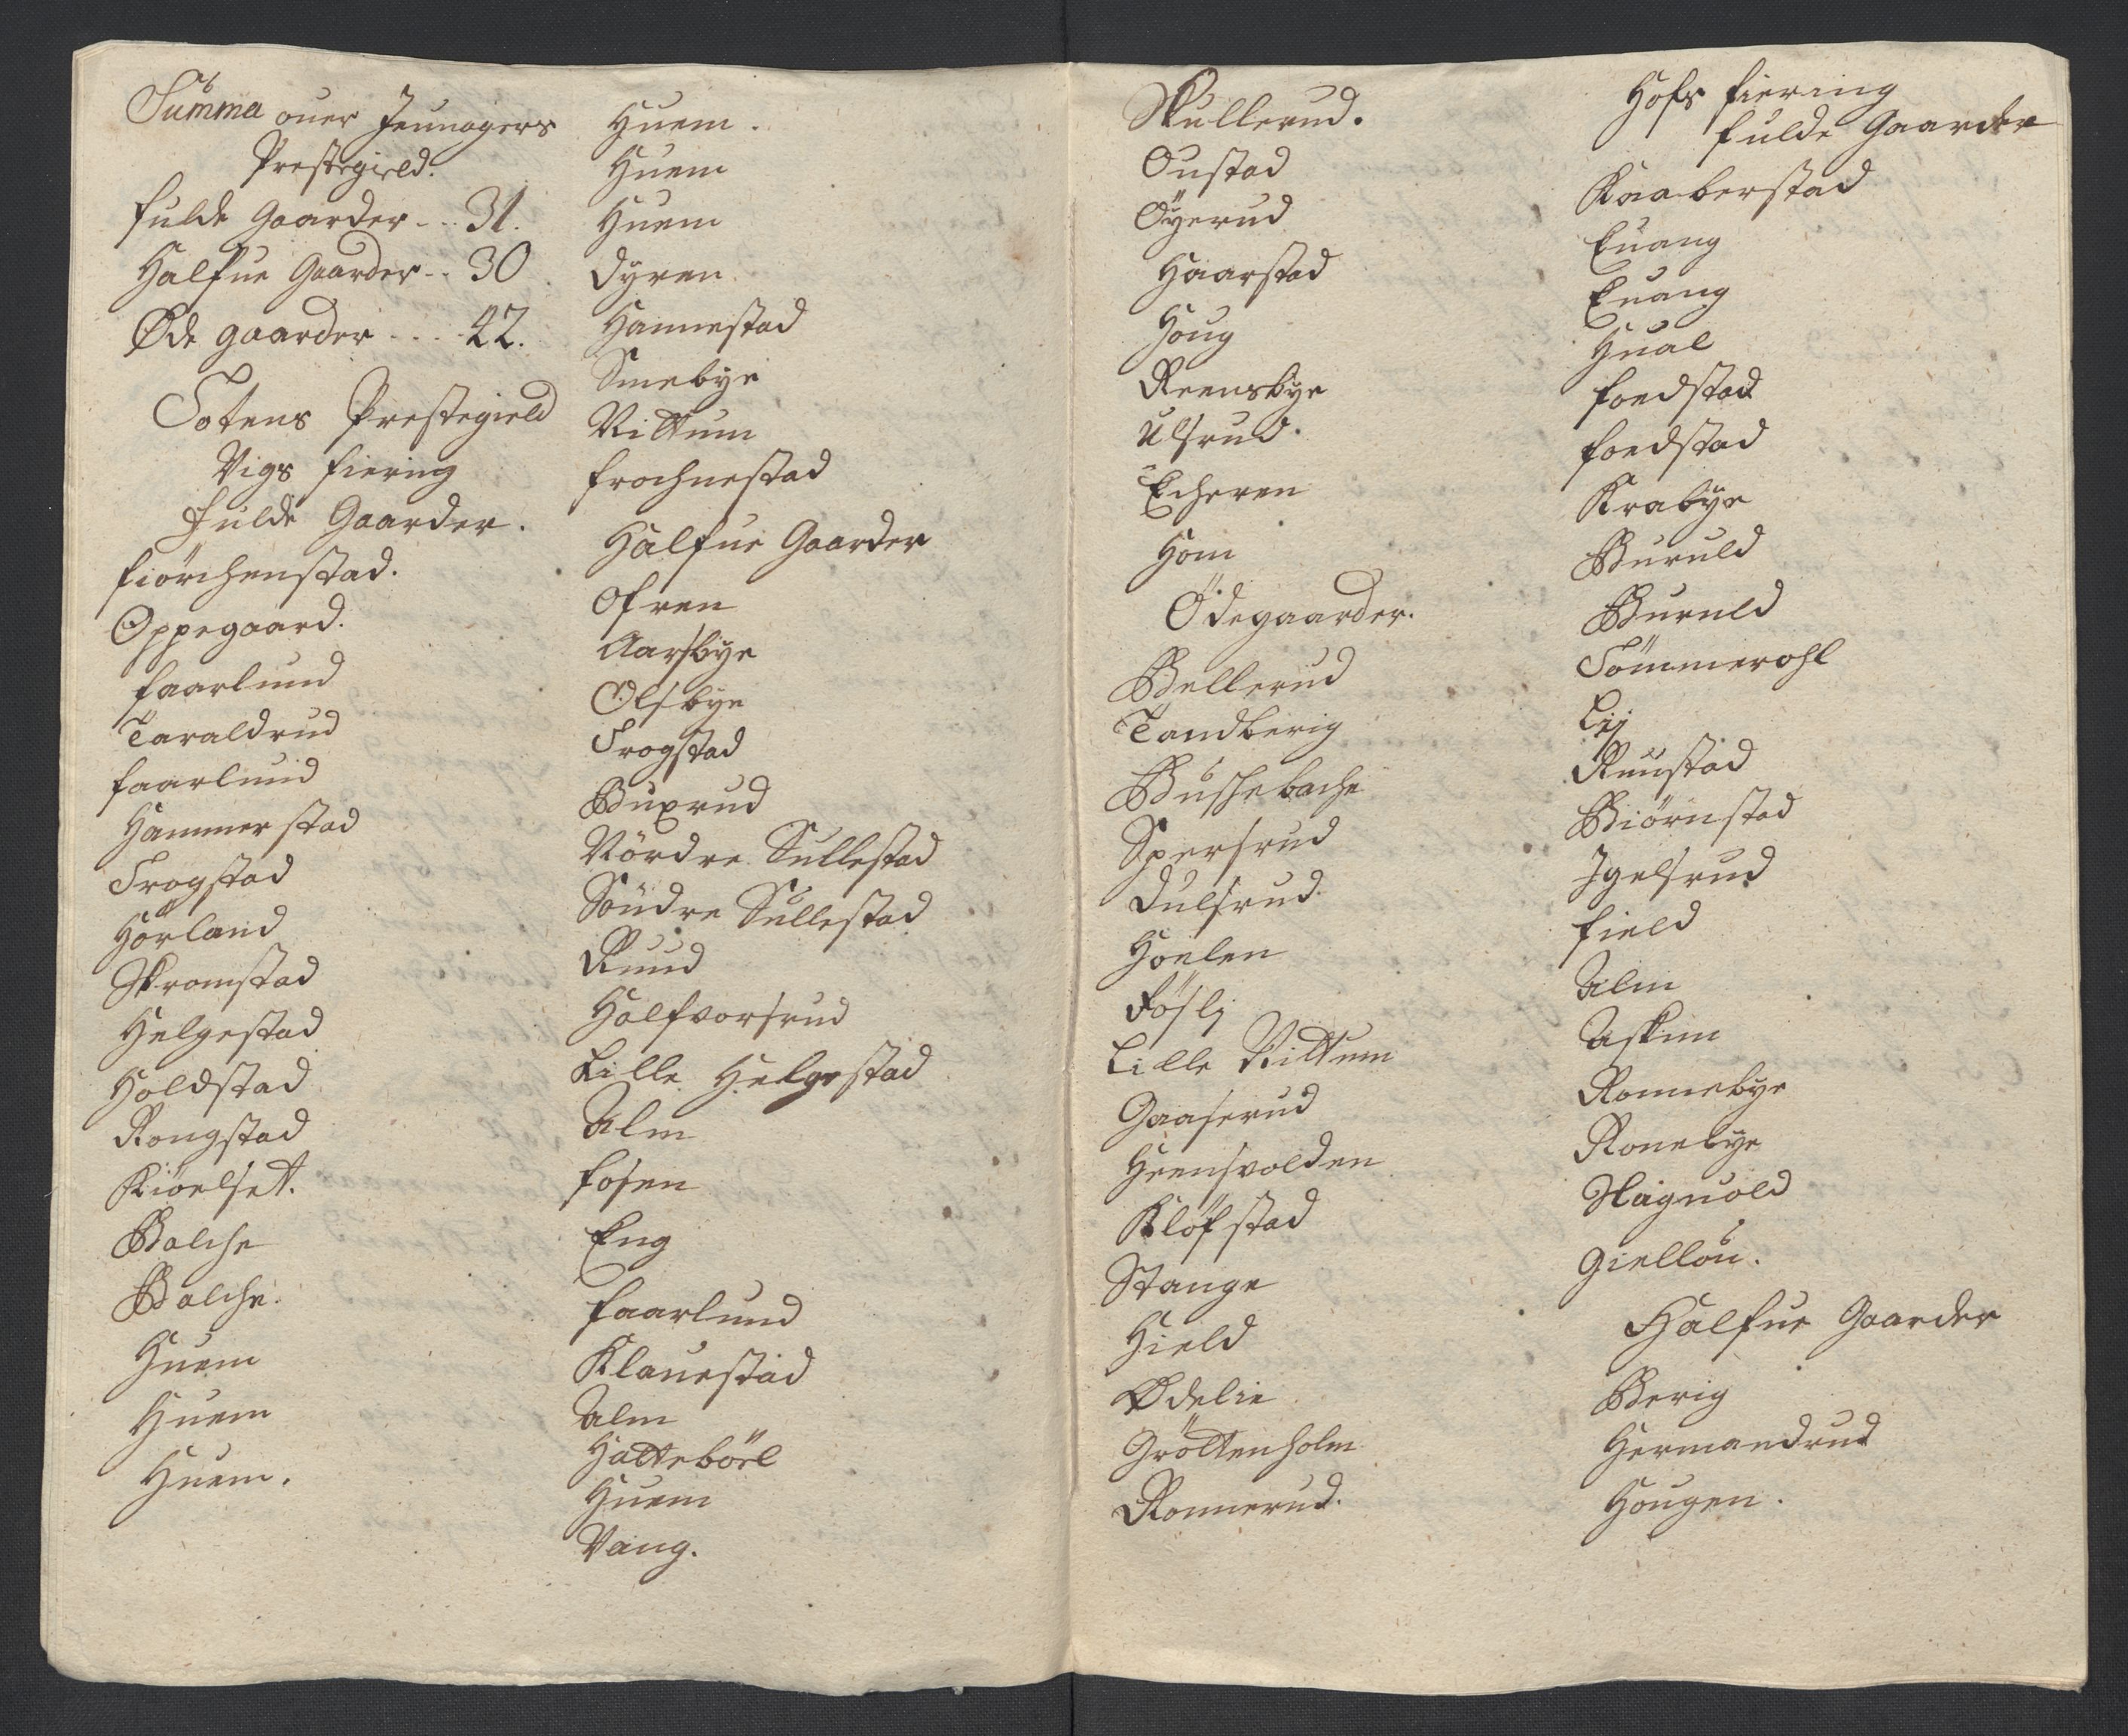 Summa ouer Jeunagers
Prestegield.
fulde Gaarder - - - 31.
Halfue Gaarder - - 30
Øde gaarder - - - - 42.
Totens Prestegield
Vigs fiering
Fulde Gaarder.
fiörchenstad.
Oppegaard.
faarlund
Taraldrud
faarlund
Hammerstad
Trogstad
Hörland
Skromstad
Helgestad
Holdstad
Rongstad
Kiöelset.
Balche
Balche.
Huem
Huem
Huem.
Huem.
Huem
Huem
Dyren
Hannestad
Smebye
Nittum
frochnestad
Halfue Gaarder
Ofren
Aarsbye
Olsbye
Trogstad
Buxrud
Nördre Sullestad
Söndre Sullestad
Ruud
Halfvorsrud
Lille Helgestad
Alm
fosen
Eng
faarlund
Klauestad
Alm
Hattebörl
Huem
Vang.
Skullerud.
Oustad
Öyerud
Haarstad
Houg
Reensbye
Ulsrud.
Echeren
Hom
Ödegaarder.
Bellerud
Tandberig
Buschebache
Spersrud
Dulsrud
Hoelen
Fösli
Lille Nittum
Gaaserud
Heensvolden
Klöfstad
Stange
Hield
Ødelie
Gröttenholm
Ronnerud.
Hofs fiering
fulde Gaarder
Kaaberstad
Euang
Euang
Hual
foedstad
foedstad
Krabye
Buruld
Buruld
Sömmerohl
Lij
Ruustad
Biörnstad
Igelsrud
field
Alm
Askim
Ronnebye
Ronebye
Haguold
Giellou.
Halfue Gaarder
Berig
Hermandrud
Hougen.